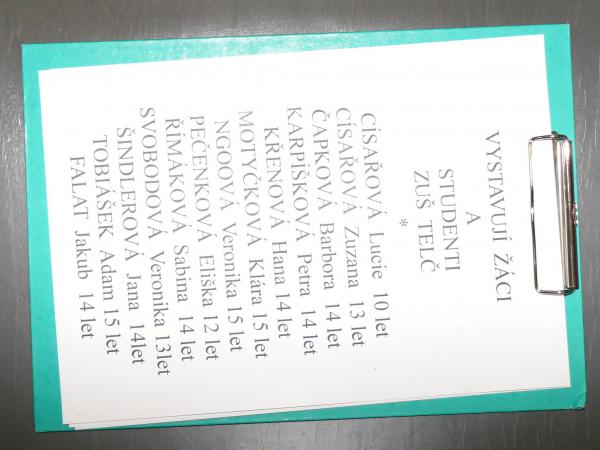 VYSTAVUJÍ ŽÁCI
A
STUDENTI
ZUŠ TELČ
*
CÍSAŘOVÁ Lucie 10 let
CÍSAŘOVÁ Zuzana 13 let
ČAPKOVÁ Barbora 14 let
KARPÍŠKOVÁ Petra 14 let
KŘENOVÁ Hana 14 let
MOTYČKOVÁ Klára 15 let
NGOOVÁ Veronika 15 let
PEČENKOVÁ Eliška 12 let
ŘÍMÁKOVÁ Sabina 14 let
SVOBODOVÁ Veronika 13let
ŠINDLEROVÁ Jana 14let
TOBIÁŠEK Adam 15 let
FALAT Jakub 14 let